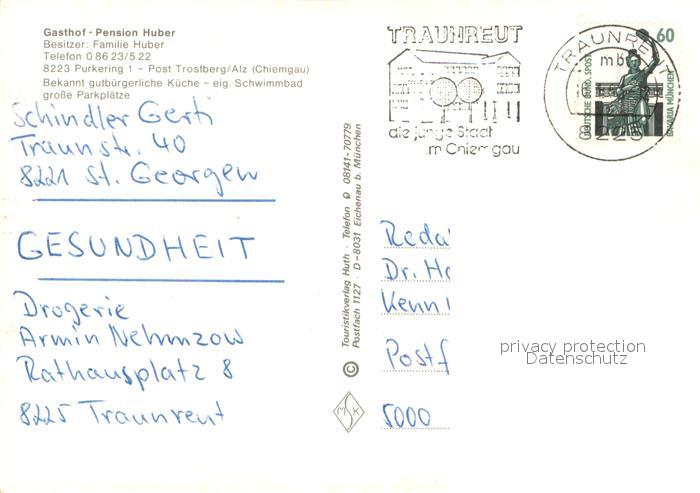 Gasthof - Pension Huber
Besitzer: Familie Huber
Telefon 0 86 23/5 22
8223 Purkering 1 – Post Trostberg/Alz (Chiemgau)
Bekannt gutbürgerliche Küche – eig. Schwimmbad
große Parkplätze
Schindler Gerti
Traunstr. 40
8221 St. Georgen
GESUNDHEIT
Drogerie
Armin Nehmzow
Rathausplatz 8
8225 Traunreut
Touristikverlag Huth · Telefon 08141-70779
Postfach 1127 · D-8031 Eichenau b. München
©
MSK
TRAUNREUT
die junge Stadt
im Chiemgau
TRAUNREUT
mb
8225
60
DEUTSCHE BUNDESPOST
BAVARIA MÜNCHEN
Reda
Dr. Ho
Kenn
Postf
5000
privacy protection
Datenschutz